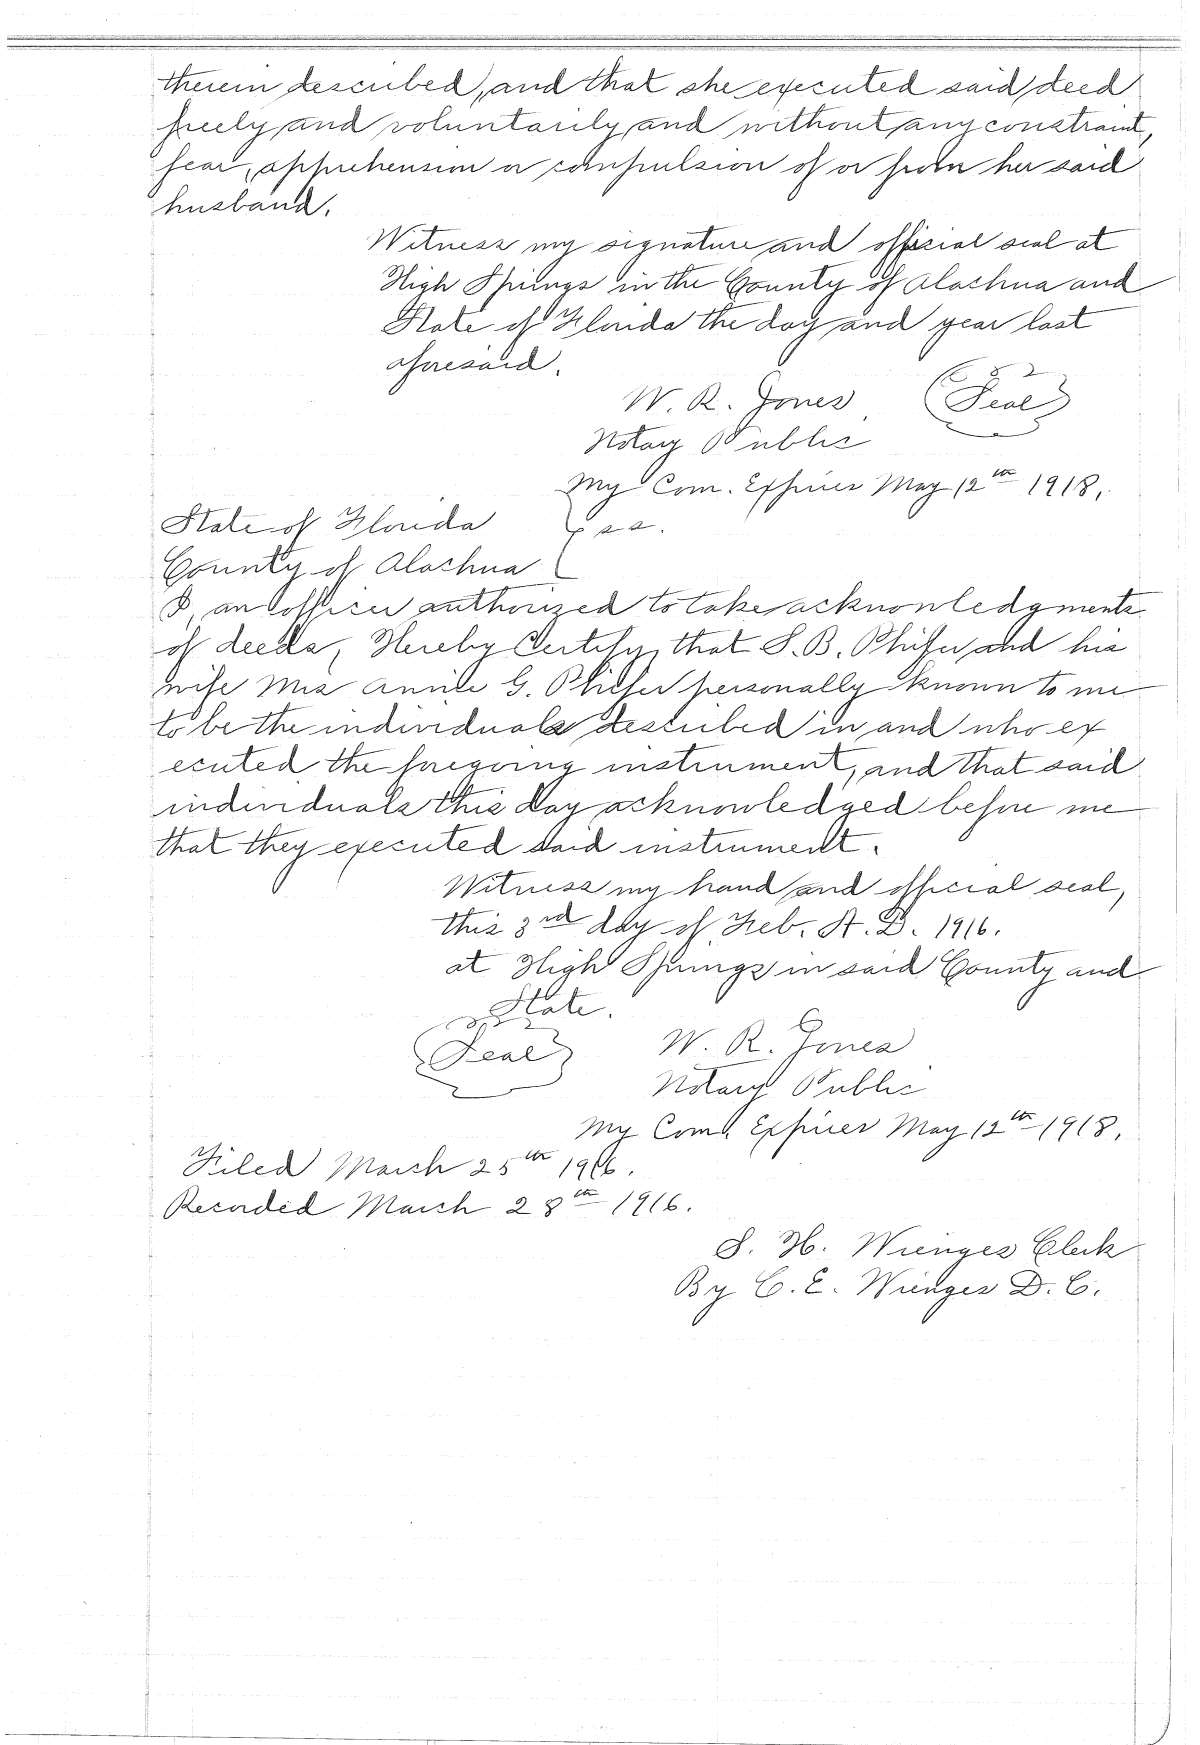 therein described, and that she executed said deed
freely and voluntarily and without any constraint,
fear, apprehension or compulsion of or from her said
husband.
Witness my signature and official seal at
High Springs in the County of Alachua and
State of Florida the day and year last
aforesaid.
W. R. Jones (Seal)
Notary Public
My Com. Expires May 12th 1918.
State of Florida } ss.
County of Alachua
I, an officer authorized to take acknowledgments
of deeds, Hereby Certify, that S. B. Phifer and his
wife Mrs Annie G. Phifer personally known to me
to be the individuals described in and who ex
ecuted the foregoing instrument, and that said
individuals this day acknowledged before me
that they executed said instrument.
Witness my hand and official seal,
this 3rd day of Feb. A. D. 1916.
at High Springs in said County and
State.
(Seal) W. R. Jones
Notary Public
My Com. Expires May 12th 1918.
Filed March 25th 1916.
Recorded March 28th 1916.
S. H. Wienges Clerk
By C. E. Wienges D. C.